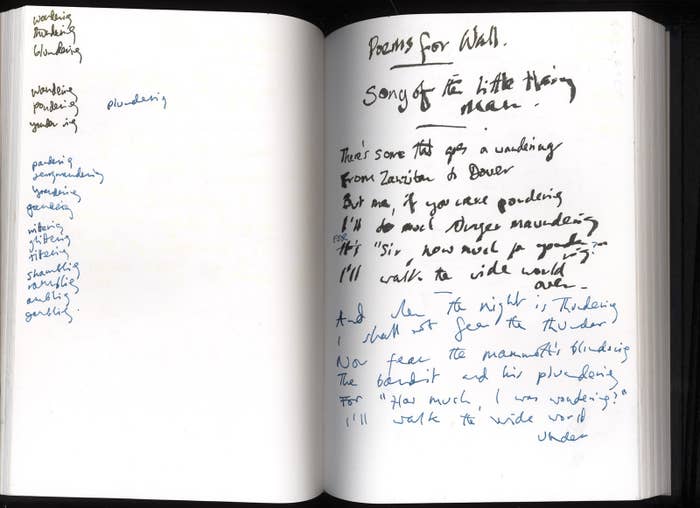 wandering
thundering
blundering
wondering
pondering plundering
yonder ing
pandering
gerrymandering
wittering
glittering
tittering
shambling
rambling
ambling
gambling.
Poems for Wall.
Song of the Little Hairy
Man.
There's some that goes a wandering
From Zanzibar to Dover
But me, if you care pondering
I'll do much stranger maundering
For
It's "Sir, how much for yonder
ring?"
I'll walk the wide world
over.
And when the night is thundering
I shall not fear the thunder
Nor fear the mammoth's blundering
The bandit and his plundering
For "How much, I was wondering?"
I'll walk the wide world
under